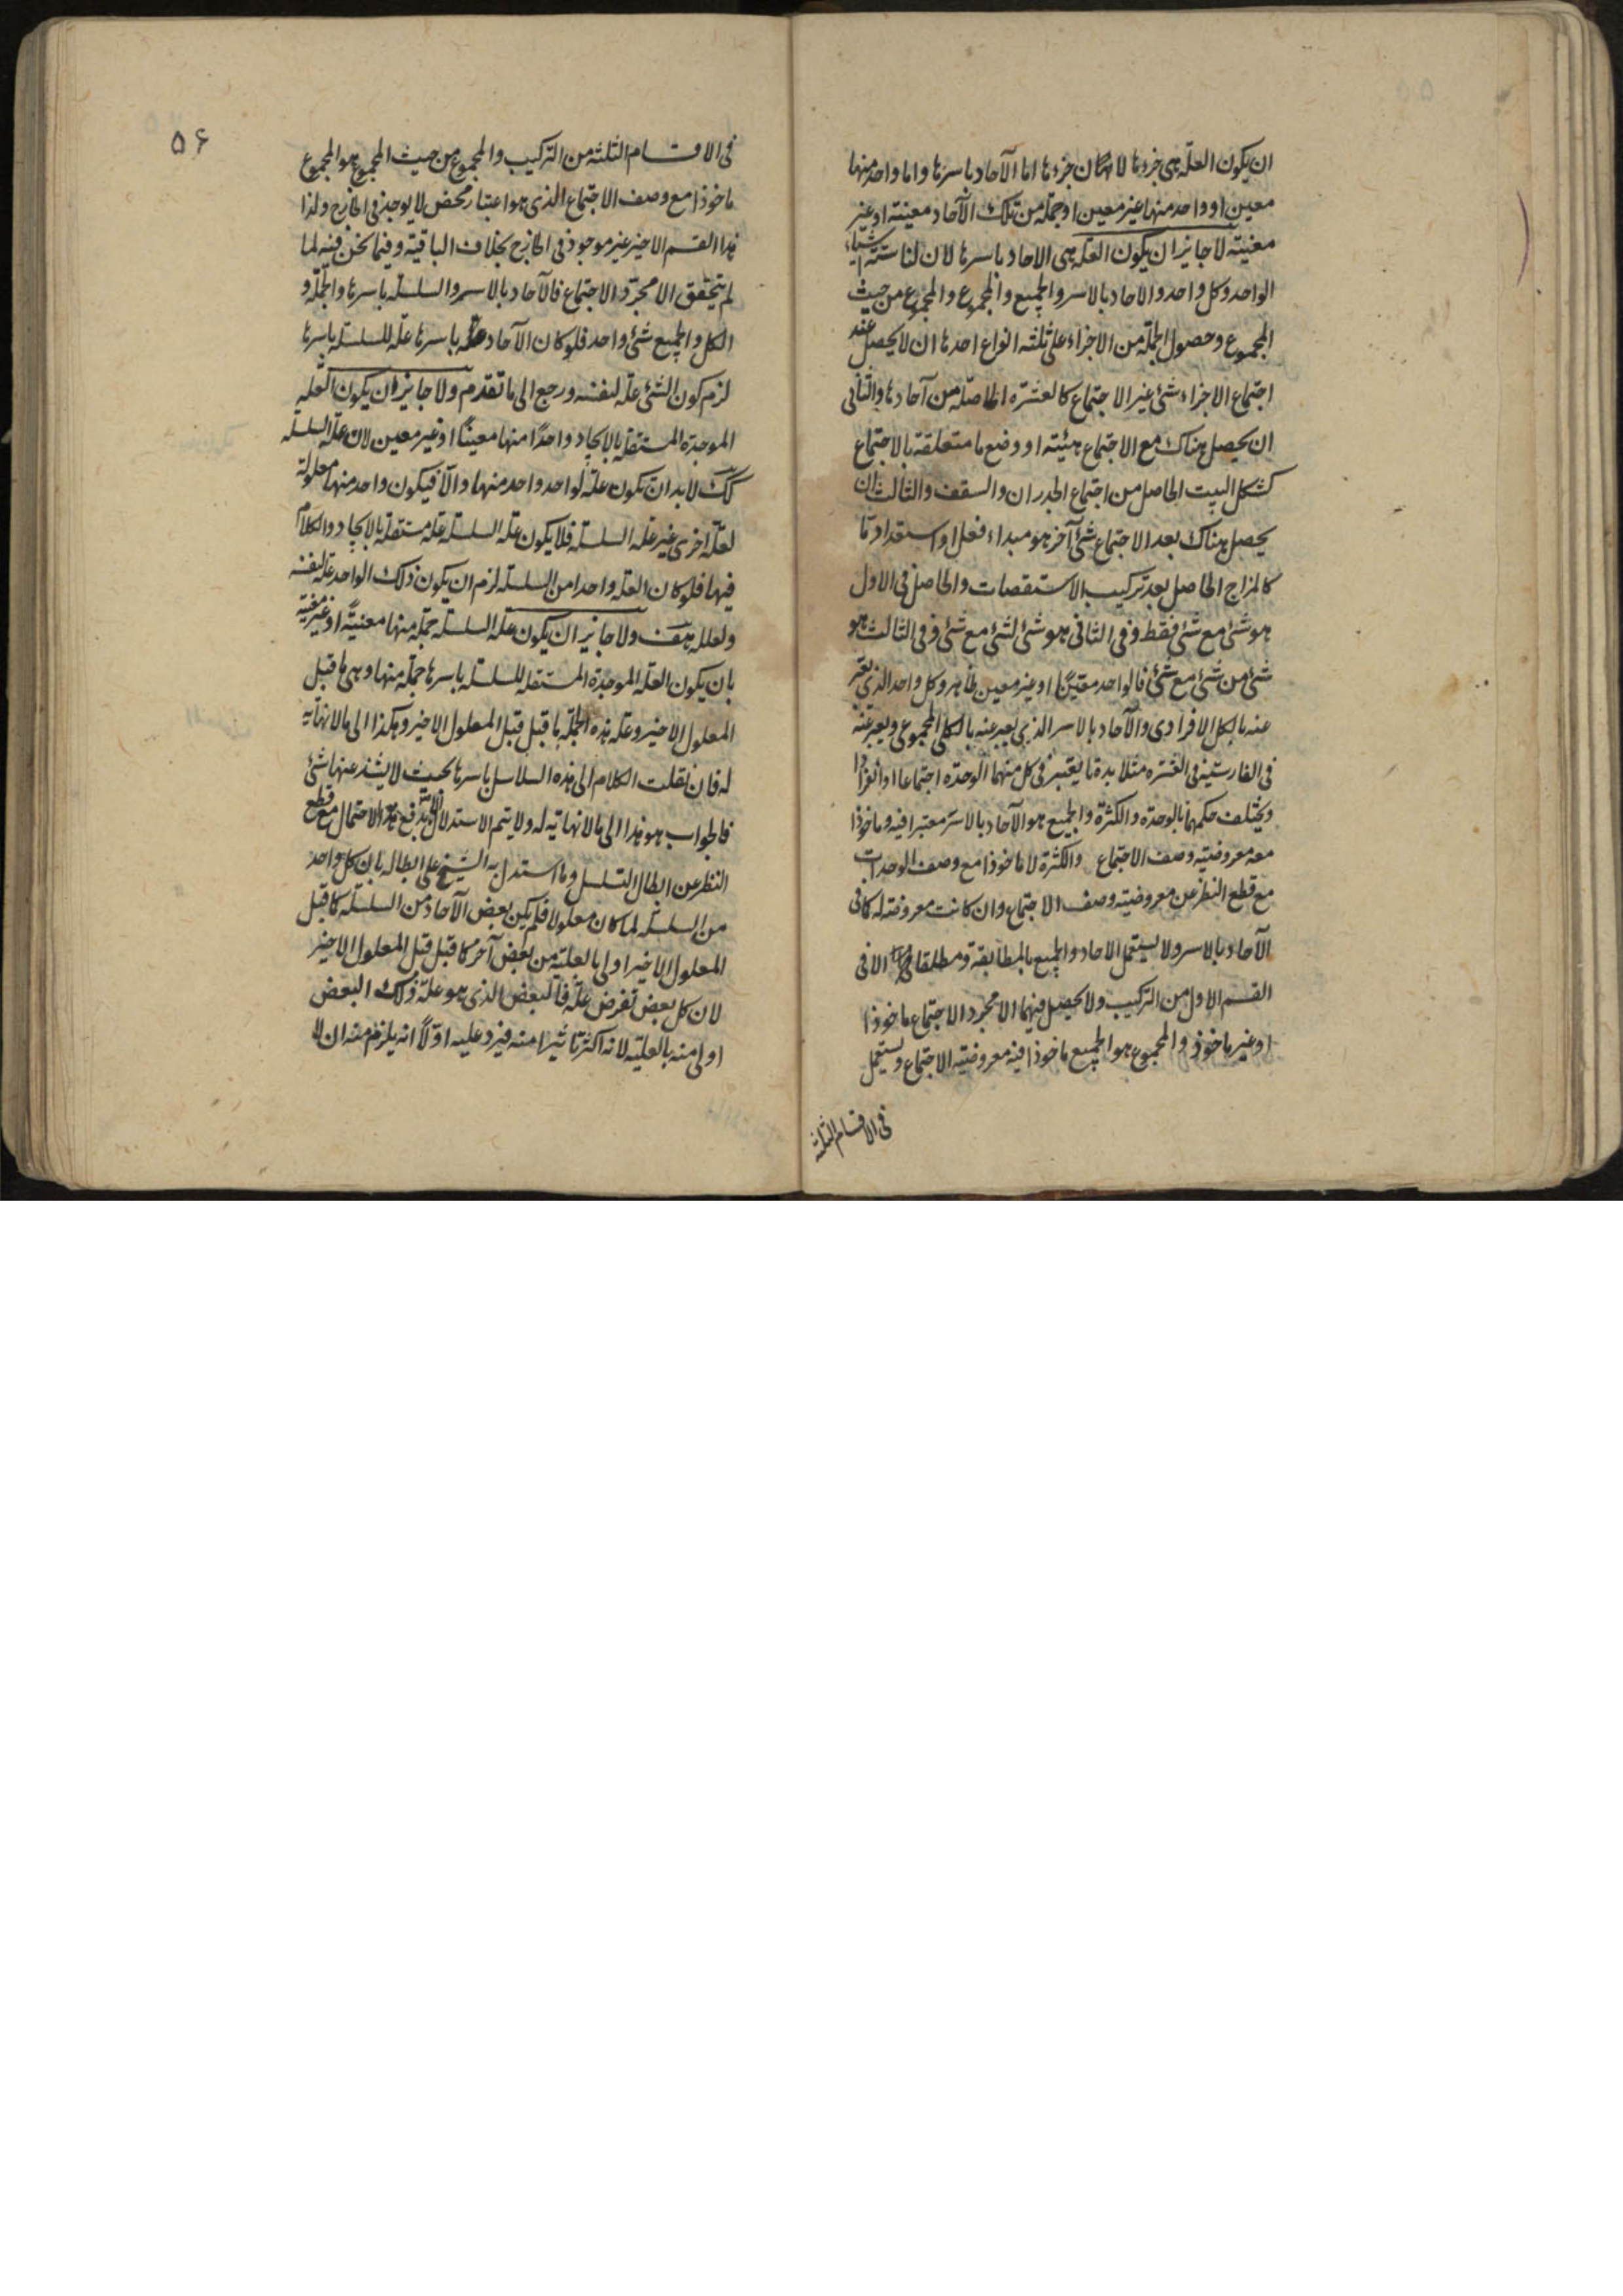 ان يكون العلة هى جزءها لا نهكان جزءها اما الآحاد باسرها واما واحد منها
معين او واحد منها غير معين او جملة من تلك الآحاد معينة او غير
معينة لا جايز ان يكون العلة هى الاحاد باسرها لان لنا ستة اشياء
الواحد وكل واحد والاحاد بالاسر والجميع والمجموع والمجموع من حيث
المجموع وحصول الجملة من الاجزاء على ثلثة انواع احدها ان لا يحصل عند
اجتماع الاجزاء شئ غير الاجتماع كالعشرة الحاصلة من آحادها والثانى
ان يحصل هناك مع الاجتماع هيئته او وضع ما متعلقة بالاجتماع
كشكل البيت الحاصل من اجتماع الجدران والسقف والثالث ان
يحصل هناك بعد الاجتماع شئ آخر هو مبداء فعل او استعداد ما
كالمزاج الحاصل بعد تركيب الاستقصات والحاصل فى الاول
هو شئ مع شئ فقط وفى الثانى هو شئ لشئ مع شئ وفى الثالث هو
شئ من شئ مع شئ فالواحد معينًا او غير معين ظاهر وكل واحد الذى يعبر
عنه بالكل الافرادى والآحاد بالاسر الذى يعبر عنه بالكل المجموعى ويعبر عنه
فى الفارسية فى العشرة مثلا بده تا يعتبر فى كل منهما الوحدة اجتماعا او انفرادا
ويختلف حكمهما بالوحدة والكثرة والجميع هو الآحاد بالاسر معتبرا فيه وماخوذا
معه معروضية وصف الاجتماع والكثرة لا ماخوذا مع وصف الوحدات
مع قطع النظر عن معروضيته وصف الاجتماع وان كانت معروضة له كما فى
الآحاد بالاسر ولا يستعمل الاحاد والجميع بالمطابقة ومطلقا الا فى
القسم الاول من التركيب ولا يحصل فيهما الا مجرد الاجتماع ماخوذا
او غير ماخوذ والمجموع هو الجميع ماخوذا فيه معروضية الاجتماع ويستعمل
فى الاقسام الثلثة
۵۶
فى الاقسام الثلثة من التركيب والمجموع من حيث المجموع هو المجموع
ماخوذا مع وصف الاجتماع الذى هو اعتبار محض لا يوجد فى الخارج ولذا
هذا القسم الاخير غير موجود فى الخارج بخلاف الباقية وفيما نحن فيه لما
لم يتحقق الا مجرد الاجتماع فالآحاد بالاسر والسلسلة باسرها والجملة و
الكل والجميع شئ واحد فلو كان الآحاد باسرها علة للسلسلة باسرها
لزم كون الشئ علة لنفسه ورجع الى ما تقدم ولا جايز ان يكون العلة
الموجدة المستقلة بالايجاد واحدًا منها معينًا او غير معين لان علة السلسلة
كك لا بد ان تكون علة لواحد واحد منها والا فيكون واحد منها معلولة
لعلة اخرى غير علة السلسلة فلا يكون علة السلسلة علة مستقلة بالايجاد والكلام
فيها فلو كان العلة واحدا من السلسلة لزم ان يكون ذلك الواحد علة لنفسه
ولعلله هف ولا جايز ان يكون علة السلسلة جملة منها معينة او غير معينة
بان يكون العلة الموجدة المستقلة للسلسلة باسرها جملة منها وهى ما قبل
المعلول الاخير وعلة هذه الجملة ما قبل قبل المعلول الاخير وهكذا الى ما لا نهاية
له فان نقلت الكلام الى هذه السلاسل باسرها بحيث لا يشذ عنها شئ
فالجواب هو هذا الى ما لا نهاية له ولا يتم الاستدلال بدفع هذا الاحتمال مع قطع
النظر عن ابطال التسلسل وما استدل به الشيخ على ابطاله بان كل واحد
من السلسلة لما كان معلولا فلم يكن بعض الآحاد من السلسلة كما قبل
المعلول الاخير اولى بالعلية من بعض آخر كما قبل قبل المعلول الاخير
لان كل بعض تفرض علة فالبعض الذى هو علة ذلك البعض
اولى منه بالعلية لانه اكثر تاثيرا منه فيرد عليه اولًا انه يلزم منه ان لا